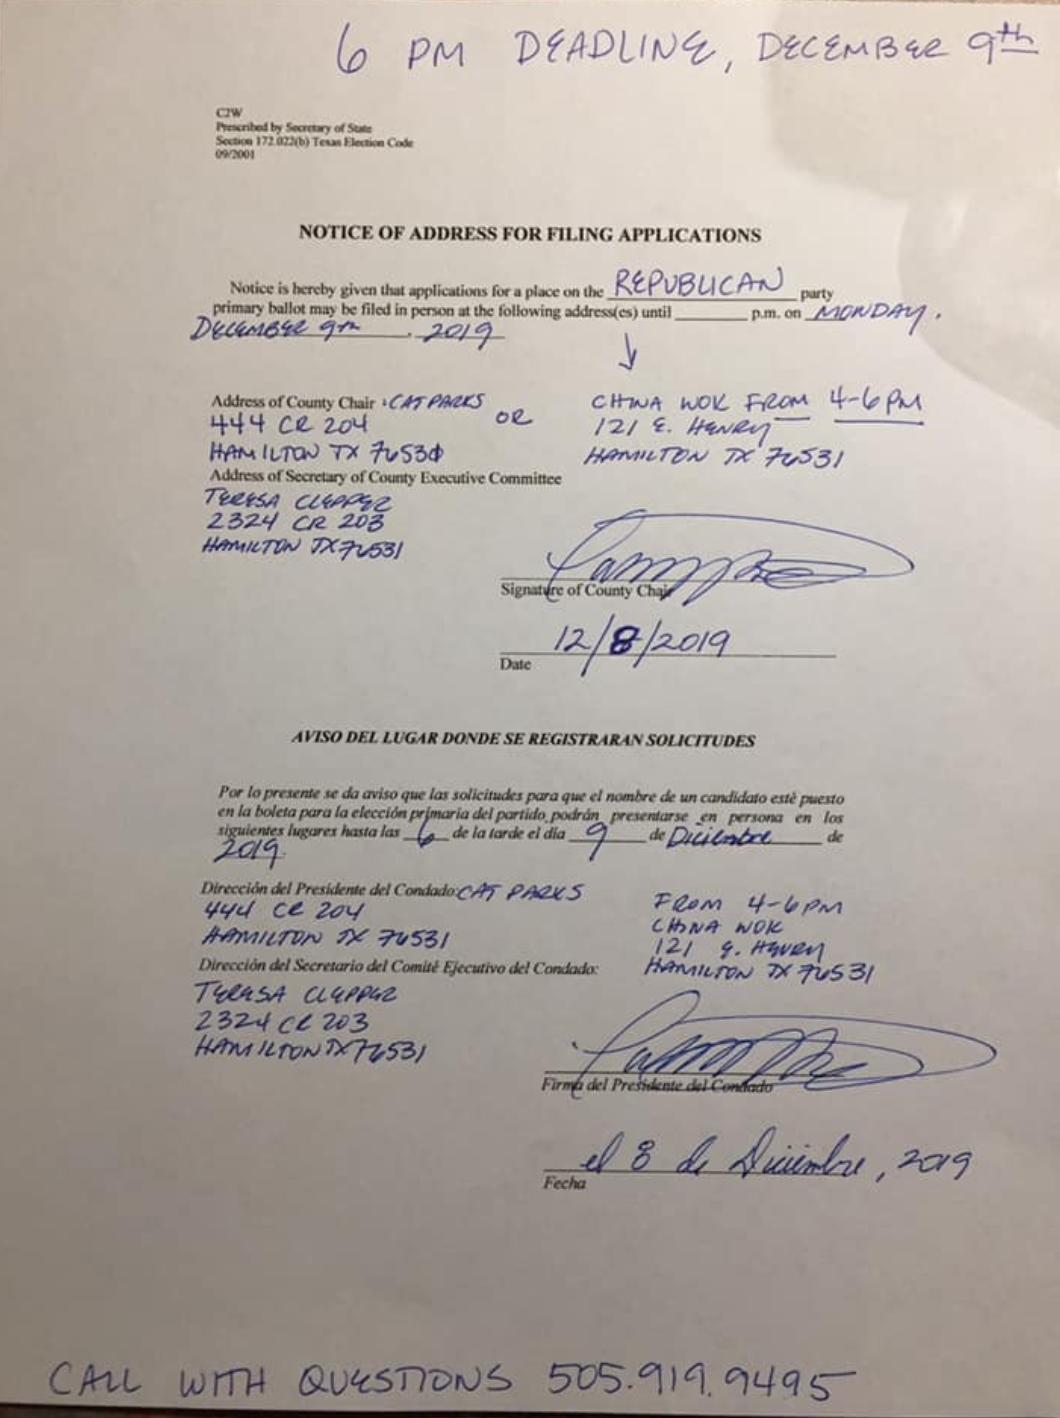 6 PM DEADLINE, DECEMBER 9th
C2W
Prescribed by Secretary of State
Section 172.022(b) Texas Election Code
09/2001
NOTICE OF ADDRESS FOR FILING APPLICATIONS
Notice is hereby given that applications for a place on the REPUBLICAN party
primary ballot may be filed in person at the following address(es) until ________ p.m. on MONDAY,
DECEMBER 9TH, 2019
Address of County Chair: CAT PARKS
444 CR 204
HAMILTON TX 76531
OR
CHINA WOK FROM 4-6 PM
121 E. HENRY
HAMILTON TX 76531
Address of Secretary of County Executive Committee
TERESA CLEPPER
2324 CR 203
HAMILTON TX 76531
Signature of County Chair
12/8/2019
Date
AVISO DEL LUGAR DONDE SE REGISTRARAN SOLICITUDES
Por lo presente se da aviso que las solicitudes para que el nombre de un candidato esté puesto
en la boleta para la elección primaria del partido podrán presentarse en persona en los
siguientes lugares hasta las 6 de la tarde el día 9 de Diciembre de
2019.
Dirección del Presidente del Condado: CAT PARKS
444 CR 204
HAMILTON TX 76531
FROM 4-6PM
CHINA WOK
121 E. HENRY
HAMILTON TX 76531
Dirección del Secretario del Comité Ejecutivo del Condado:
TERESA CLEPPER
2324 CR 203
HAMILTON TX 76531
Firma del Presidente del Condado
el 8 de Diciembre, 2019
Fecha
CALL WITH QUESTIONS 505.919.9495